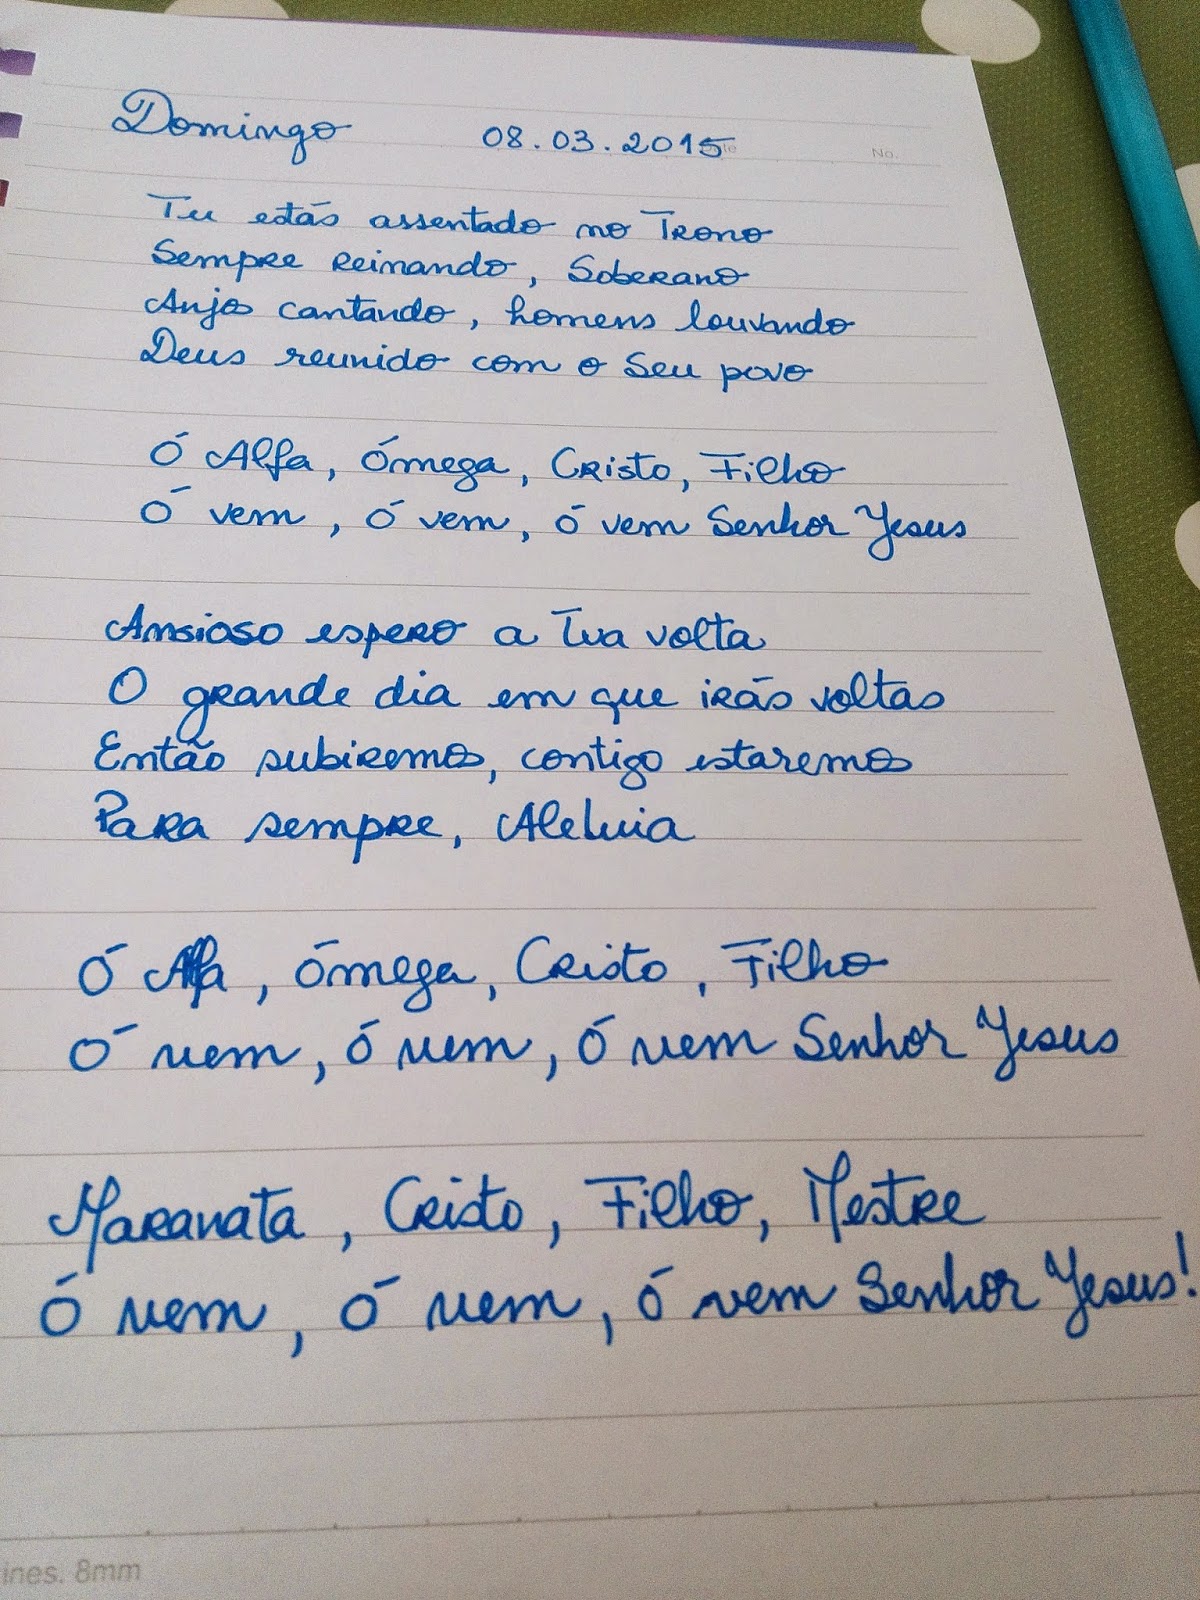 Domingo 08.03.2015
No.
Tu estás assentado no Trono
Sempre Reinando, Soberano
Anjos cantando, homens louvando
Deus reunido com o Seu povo
Ó Alfa, Ómega, Cristo, Filho
Ó vem, ó vem, ó vem Senhor Jesus
Ansioso espero a Tua volta
O grande dia em que irás voltas
Então subiremos, contigo estaremos
Para sempre, Aleluia
Ó Alfa, Ómega, Cristo, Filho
Ó vem, ó vem, ó vem Senhor Jesus
Maranata, Cristo, Filho, Mestre
Ó vem, ó vem, ó vem Senhor Jesus!
ines. 8mm